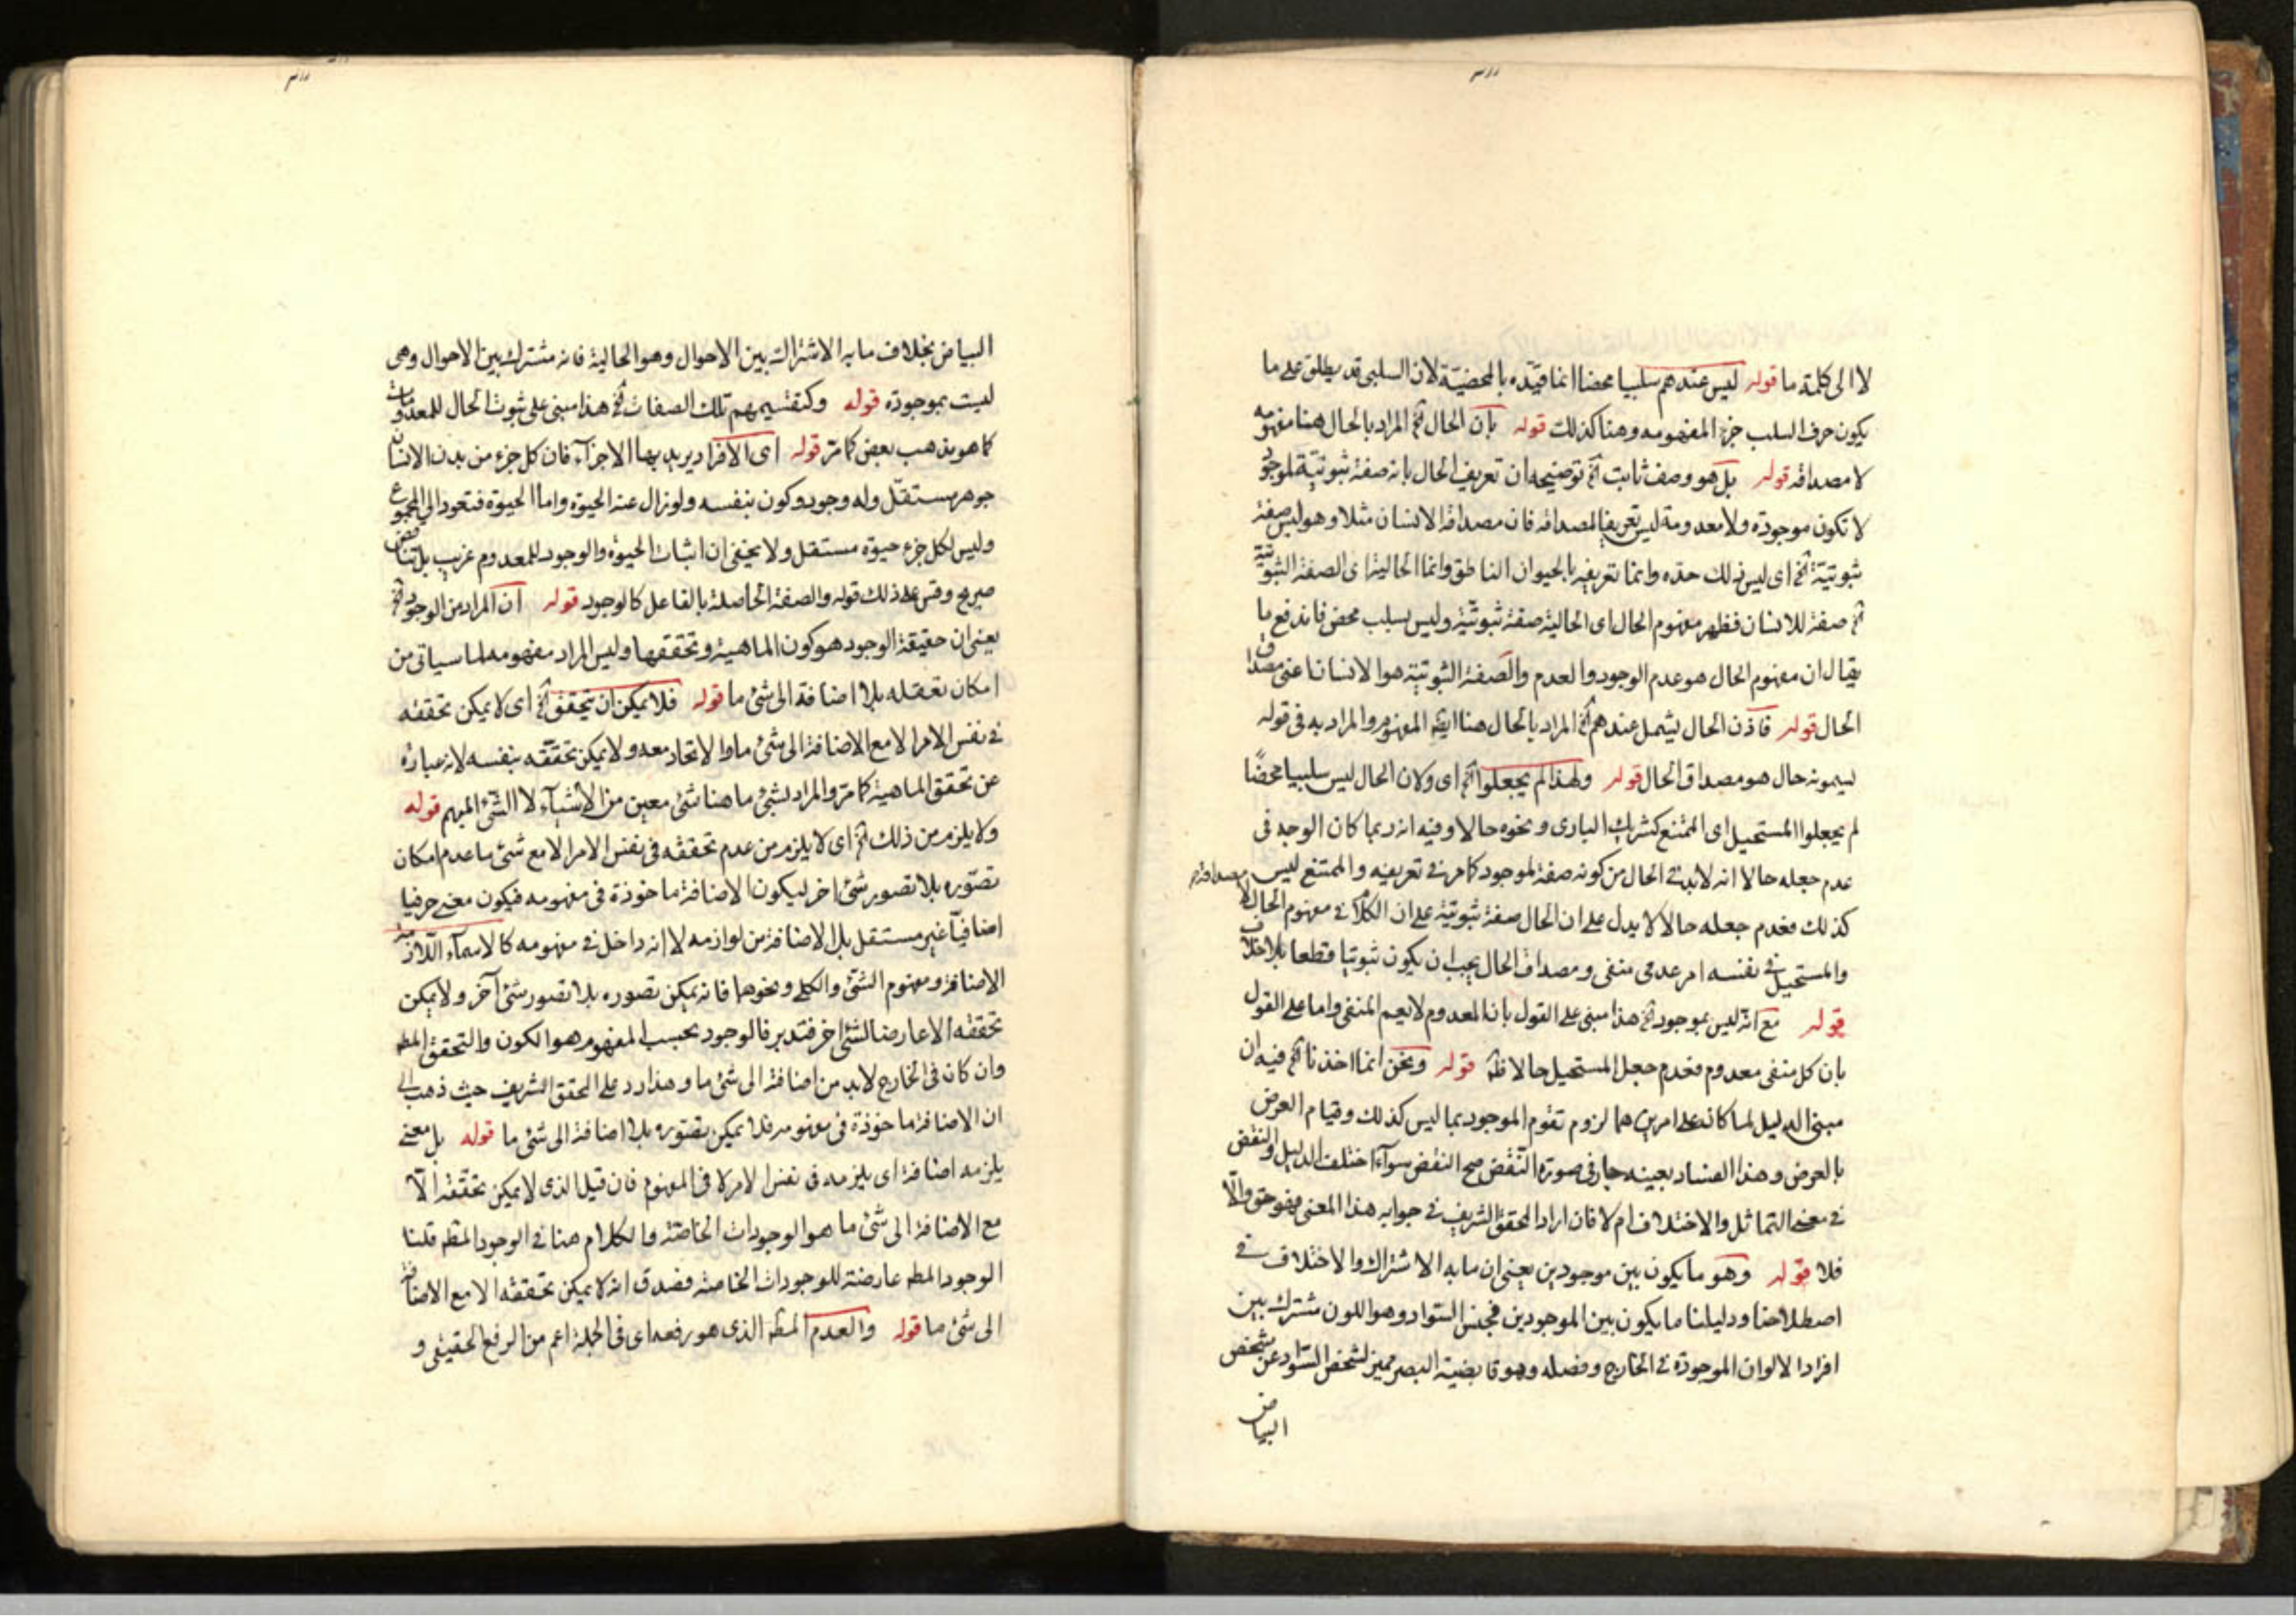 لا الى كلمة ما قوله ليس عندهم سلبيا محضا انما قيّده بالمحضيّة لان السلبى قد يطلق على ما
يكون حرف السلب جزء المفهومه وهنا كذلك قوله بان الحال الخ المراد بالحال هنا مفهومه
لا مصداقه قوله بل هو وصف ثابت الخ توضيحه ان تعريف الحال بانه صفة ثبوتيّة لموجود
لا تكون موجودة ولا معدومة ليس تعريفا لمصداقه فان مصداقه الانسان مثلا وهو ليس صفة
ثبوتيّة الخ اى ليس ذلك حده وانما تعريفه بالحيوان الناطق وانما الحالية اى الصفة الثبوتية
الخ صفة للانسان فظهر مفهوم الحال اى الحالية صفة ثبوتيّة وليس بسلب محض فاندفع ما
يقال ان مفهوم الحال هو عدم الوجود والعدم والصفة الثبوتية هو الانسان اعنى مصداق
الحال قوله فاذن الحال يشمل عندهم الخ المراد بالحال هنا ايضا المفهوم والمراد به فى قوله
يسمونه حال هو مصداق الحال قوله ولهذا لم يجعلوا الخ اى ولان الحال ليس سلبيا محضًا
لم يجعلوا المستحيل اى الممتنع كشريك البارى ونحوه حالا وفيه انه ربما كان الوجه فى
عدم جعله حالا انه لا بد فى الحال من كونه صفة لموجود كما مر فى تعريفه والممتنع ليس
كذلك فعدم جعله حالا لا يدل على ان الحال صفة ثبوتية على ان الكلام فى مفهوم الحال لا مصداقه
والمستحيل فى نفسه امر عدمى منفى ومصداق الحال يجب ان يكون ثبوتيا قطعا بلا خلاف
قوله مع انه ليس بموجود الخ هذا مبنى على القول بان المعدوم لا يعم المنفى واما على القول
بان كل منفى معدوم فعدم جعل المستحيل حالا ظ قوله ونحن انما اخذنا الخ فيه ان
مبنى الدليل لما كان على امرين هما لزوم تقوم الموجود بما ليس كذلك وقيام العرض
بالعرض وهذا الفساد بعينه جار فى صورة النّقض صح النقض سوآء اختلف الدليل والنقض
فى معنى التماثل والاختلاف ام لا فان اراد المحقق الشريف فى جوابه هذا المعنى فهو حق والّا
فلا قوله وهو ما يكون بين موجودين يعنى ان ما به الاشتراك والاختلاف فى
اصطلاحنا ودليلنا ما يكون بين الموجودين فجنس السّواد وهو اللون مشترك بين
افراد الالوان الموجودة فى الخارج وفصله وهو قابضية البصر مميز لشخص السّواد عن شخص
البياض
البياض بخلاف ما به الاشتراك بين الاحوال وهو الحالية فانه مشترك بين الاحوال وهى
ليست بموجودة قوله وكتقسيمهم تلك الصفات الخ هذا مبنى على ثبوت الحال للمعدومات
كما هو مذهب بعض كما مر قوله اى الافراد يريد بها الاجزآء فان كل جزء من بدن الانسان
جوهر مستقلّ وله وجود وكون بنفسه ولو زال عنه الحيوة واما الحيوة فتعود الى المجموع
وليس لكل جزء حيوة مستقل ولا يخفى ان اثبات الحيوة والوجود للمعدوم غريب بل تناقض
صريح وقس على ذلك قوله والصفة الحاصلة بالفاعل كالوجود قوله ان المراد من الوجود الخ
يعنى ان حقيقة الوجود هو كون الماهية وتحققها وليس المراد مفهومه لما سياتى من
امكان تعقله بلا اضافة الى شئ ما قوله فلا يمكن ان يتحقق الخ اى لا يمكن تحققه
فى نفس الامر الا مع الاضافة الى شئ ما والاتحاد معه ولا يمكن تحقّقه بنفسه لانه عبارة
عن تحقق الماهية كما مر والمراد بشئ ما هنا شئ معين من الاشيآء لا الشئ المبهم قوله
ولا يلزم من ذلك الخ اى لا يلزم من عدم تحققه فى نفس الامر الا مع شئ ما عدم امكان
تصوّره بلا تصور شئ اخر ليكون الاضافة ماخوذة فى مفهومه فيكون معنى حرفيا
اضافيّا غير مستقل بل الاضافة من لوازمه لا انه داخل فى مفهومه كالاسمآء اللّازمة
الاضافة ومفهوم الشئ والكلى ونحوهما فانه يمكن تصوره بلا تصور شئ آخر ولا يمكن
تحققه الا عارضا لشئ اخر فتدبر فالوجود بحسب المفهوم هو الكون والتحقق المط
وان كان فى الخارج لا بد من اضافة الى شئ ما وهذا رد على المحقق الشريف حيث ذهب الى
ان الاضافة ماخوذة فى مفهومه فلا يمكن تصوره بلا اضافة الى شئ ما قوله بل معنى
يلزمه اضافة اى يلزمه فى نفس الامر لا فى المفهوم فان قيل الذى لا يمكن تحققه الّا
مع الاضافة الى شئ ما هو الوجودات الخاصّة والكلام هنا فى الوجود المط قلنا
الوجود المط عارضة للوجودات الخاصة فصدق انه لا يمكن تحققه الا مع الاضافة
الى شئ ما قوله والعدم المط الذى هو رفعه اى فى الجملة اعم من الرفع الحقيقى و